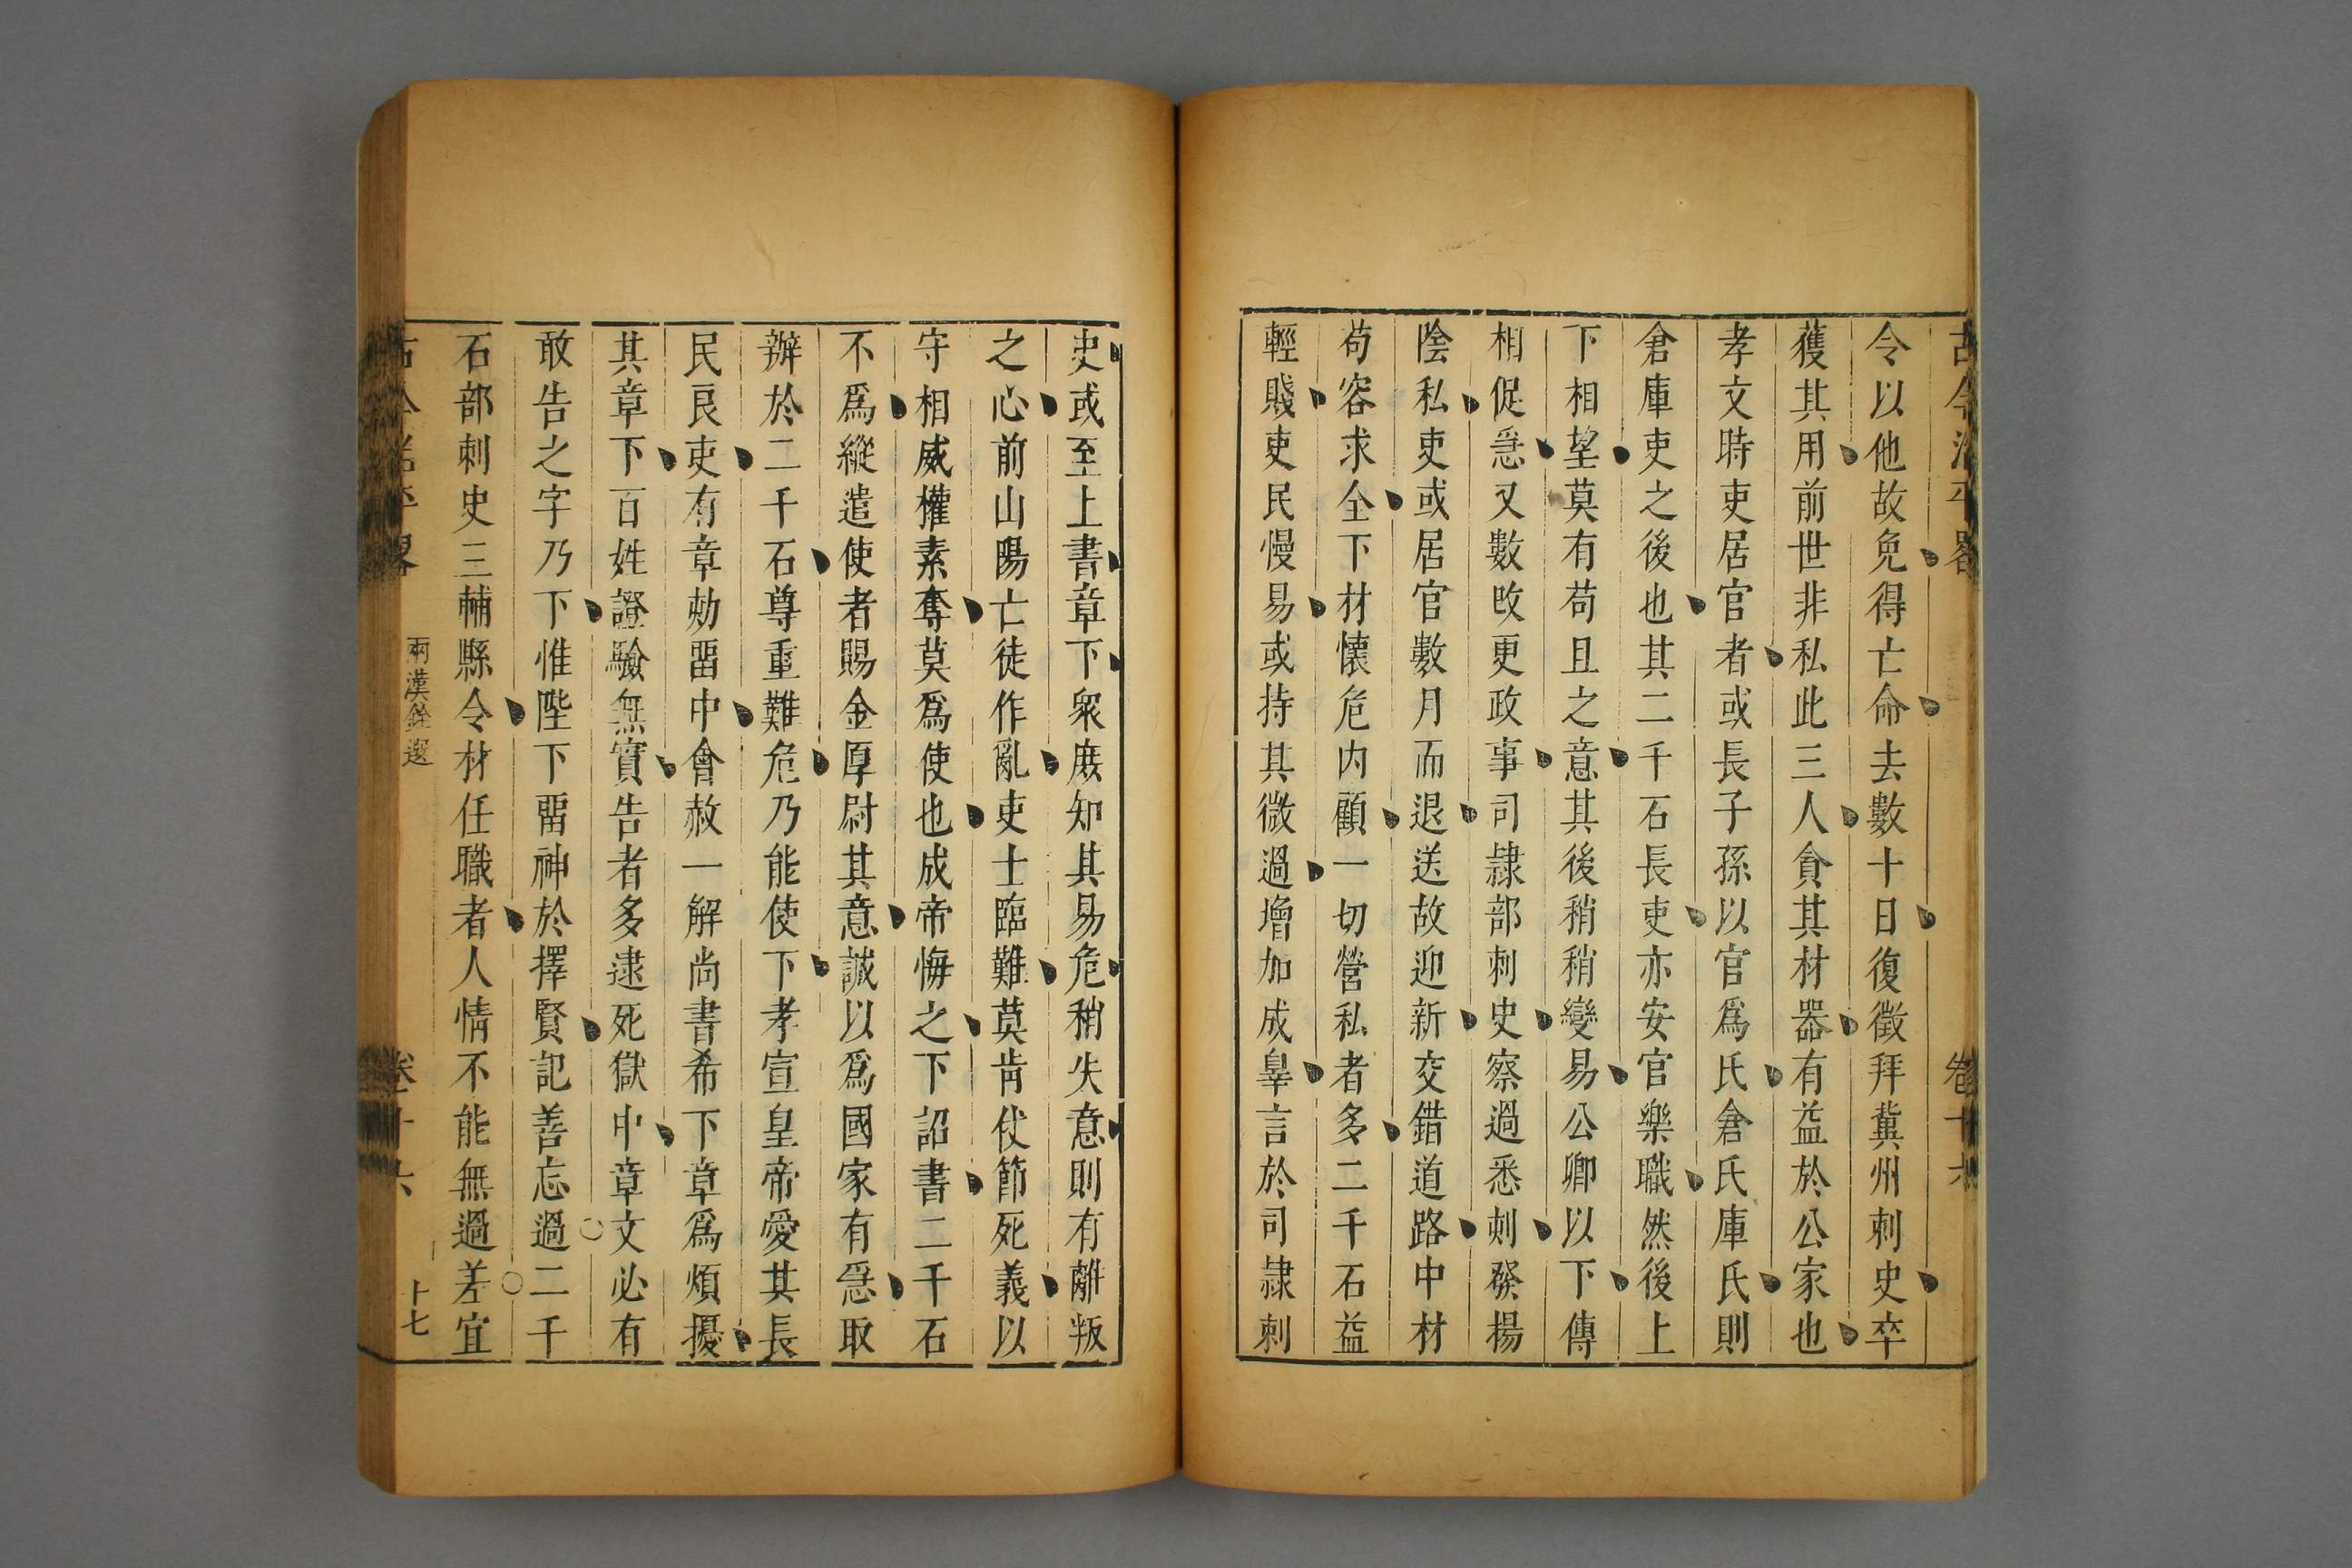 古今治平畧
卷十六
令以他故免得亡命去數十日復徵拜冀州刺史卒
獲其用前世非私此三人貪其材器有益於公家也
孝文時吏居官者或長子孫以官爲氏倉氏庫氏則
倉庫吏之後也其二千石長吏亦安官樂職然後上
下相望莫有苟且之意其後稍稍變易公卿以下傳
相促急又數改更政事司隷部刺史察過悉刺發揚
陰私吏或居官數月而退送故迎新交錯道路中材
苟容求全下材懷危内顧一切營私者多二千石益
輕賤吏民慢易或持其微過增加成辠言於司隷刺
史或至上書章下衆庶知其易危稍失意則有離叛
之心前山陽亡徒作亂吏士臨難莫肯伏節死義以
守相威權素奪莫爲使也成帝悔之下詔書二千石
不爲縱遣使者賜金厚尉其意誠以爲國家有急取
辦於二千石尊重難危乃能使下孝宣皇帝愛其長
民良吏有章劾畱中會赦一解尚書希下章爲煩擾
其章下百姓證驗無實告者多逮死獄中章文必有
敢告之字乃下惟陛下畱神於擇賢記善忘過二千
石部刺史三輔縣令材任職者人情不能無過差宜
古今治平畧
兩漢銓選
卷十六
十七